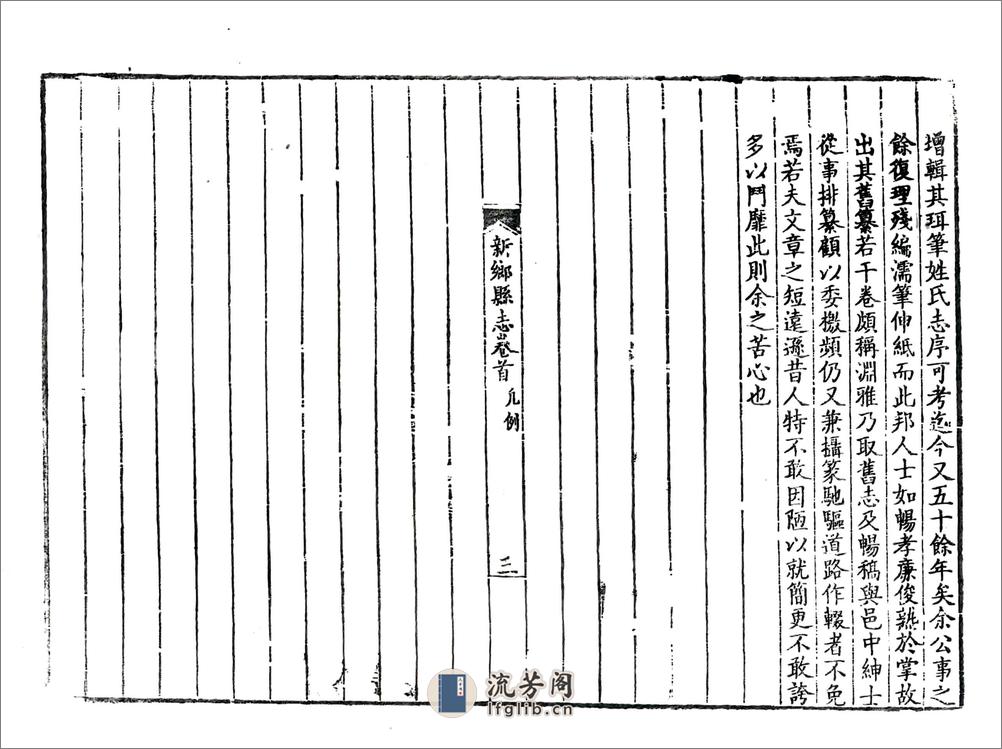 增輯其珥筆姓氏志序可考迄今又五十餘年矣余公事之
餘復理殘編濡筆伸紙而此邦人士如暢孝廉俊熟於掌故
出其舊纂若干卷頗稱淵雅乃取舊志及暢稿與邑中紳士
從事排纂顧以委檄頻仍又兼攝篆馳驅道路作輟者不免
焉若夫文章之短遠遜昔人特不敢因陋以就簡更不敢誇
多以鬥靡此則余之苦心也
新鄉縣志卷首 凡例
三
流芳阁
lfglib.cn